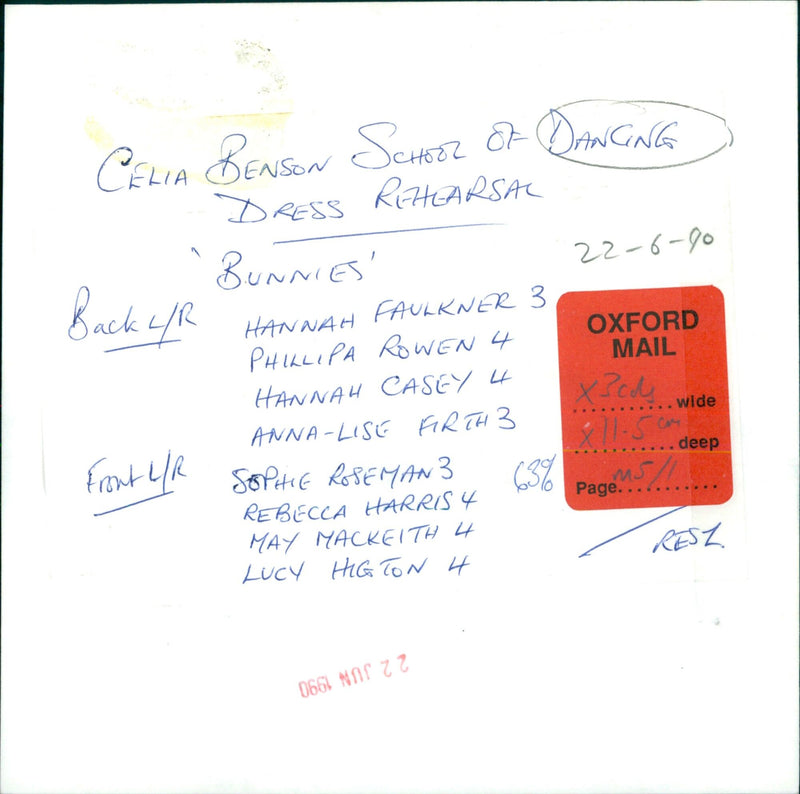 CELIA BENSON SCHOOL OF DANCING
DRESS REHEARSAL
'BUNNIES'
22-6-90
Back L/R
HANNAH FAULKNER 3
PHILLIPA ROWEN 4
HANNAH CASEY 4
ANNA-LISE FIRTH 3
Front L/R
SOPHIE ROSEMAN 3
REBECCA HARRIS 4
MAY MACKEITH 4
LUCY HIGTON 4
63%
OXFORD
MAIL
x 3 cols wide
x 11.5 cm deep
Page M5/1
22 JUN 1990